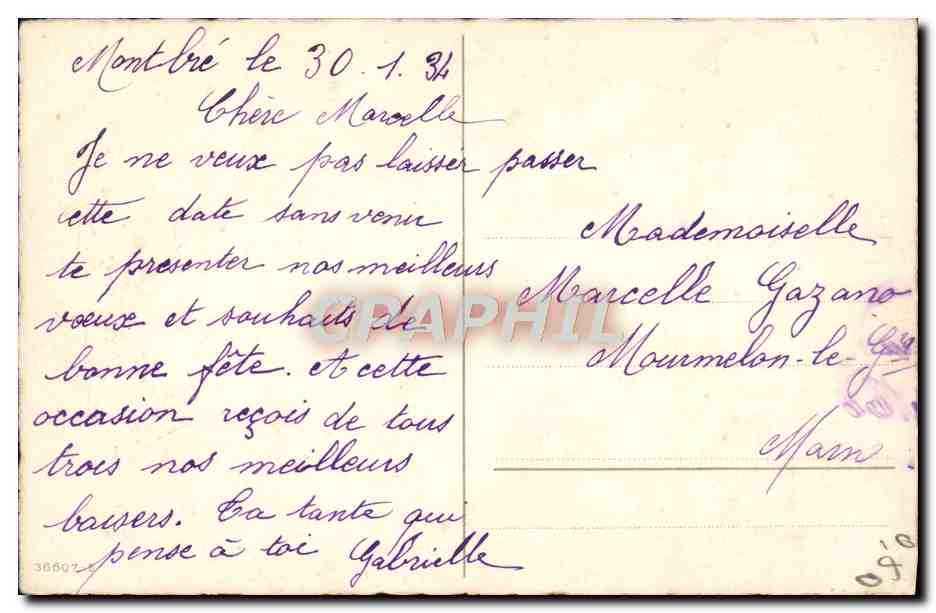 Montbré le 30.1.34
Chère Marcelle
Je ne veux pas laisser passer
cette date sans venir
te presenter nos meilleurs
vœux et souhaits de
bonne fête. A cette
occasion reçois de tous
trois nos meilleurs
baisers. Ta tante qui
pense à toi Gabrielle
36607
Mademoiselle
Marcelle Gazano
Mourmelon-le-Gd
Marne
CPAPHIL